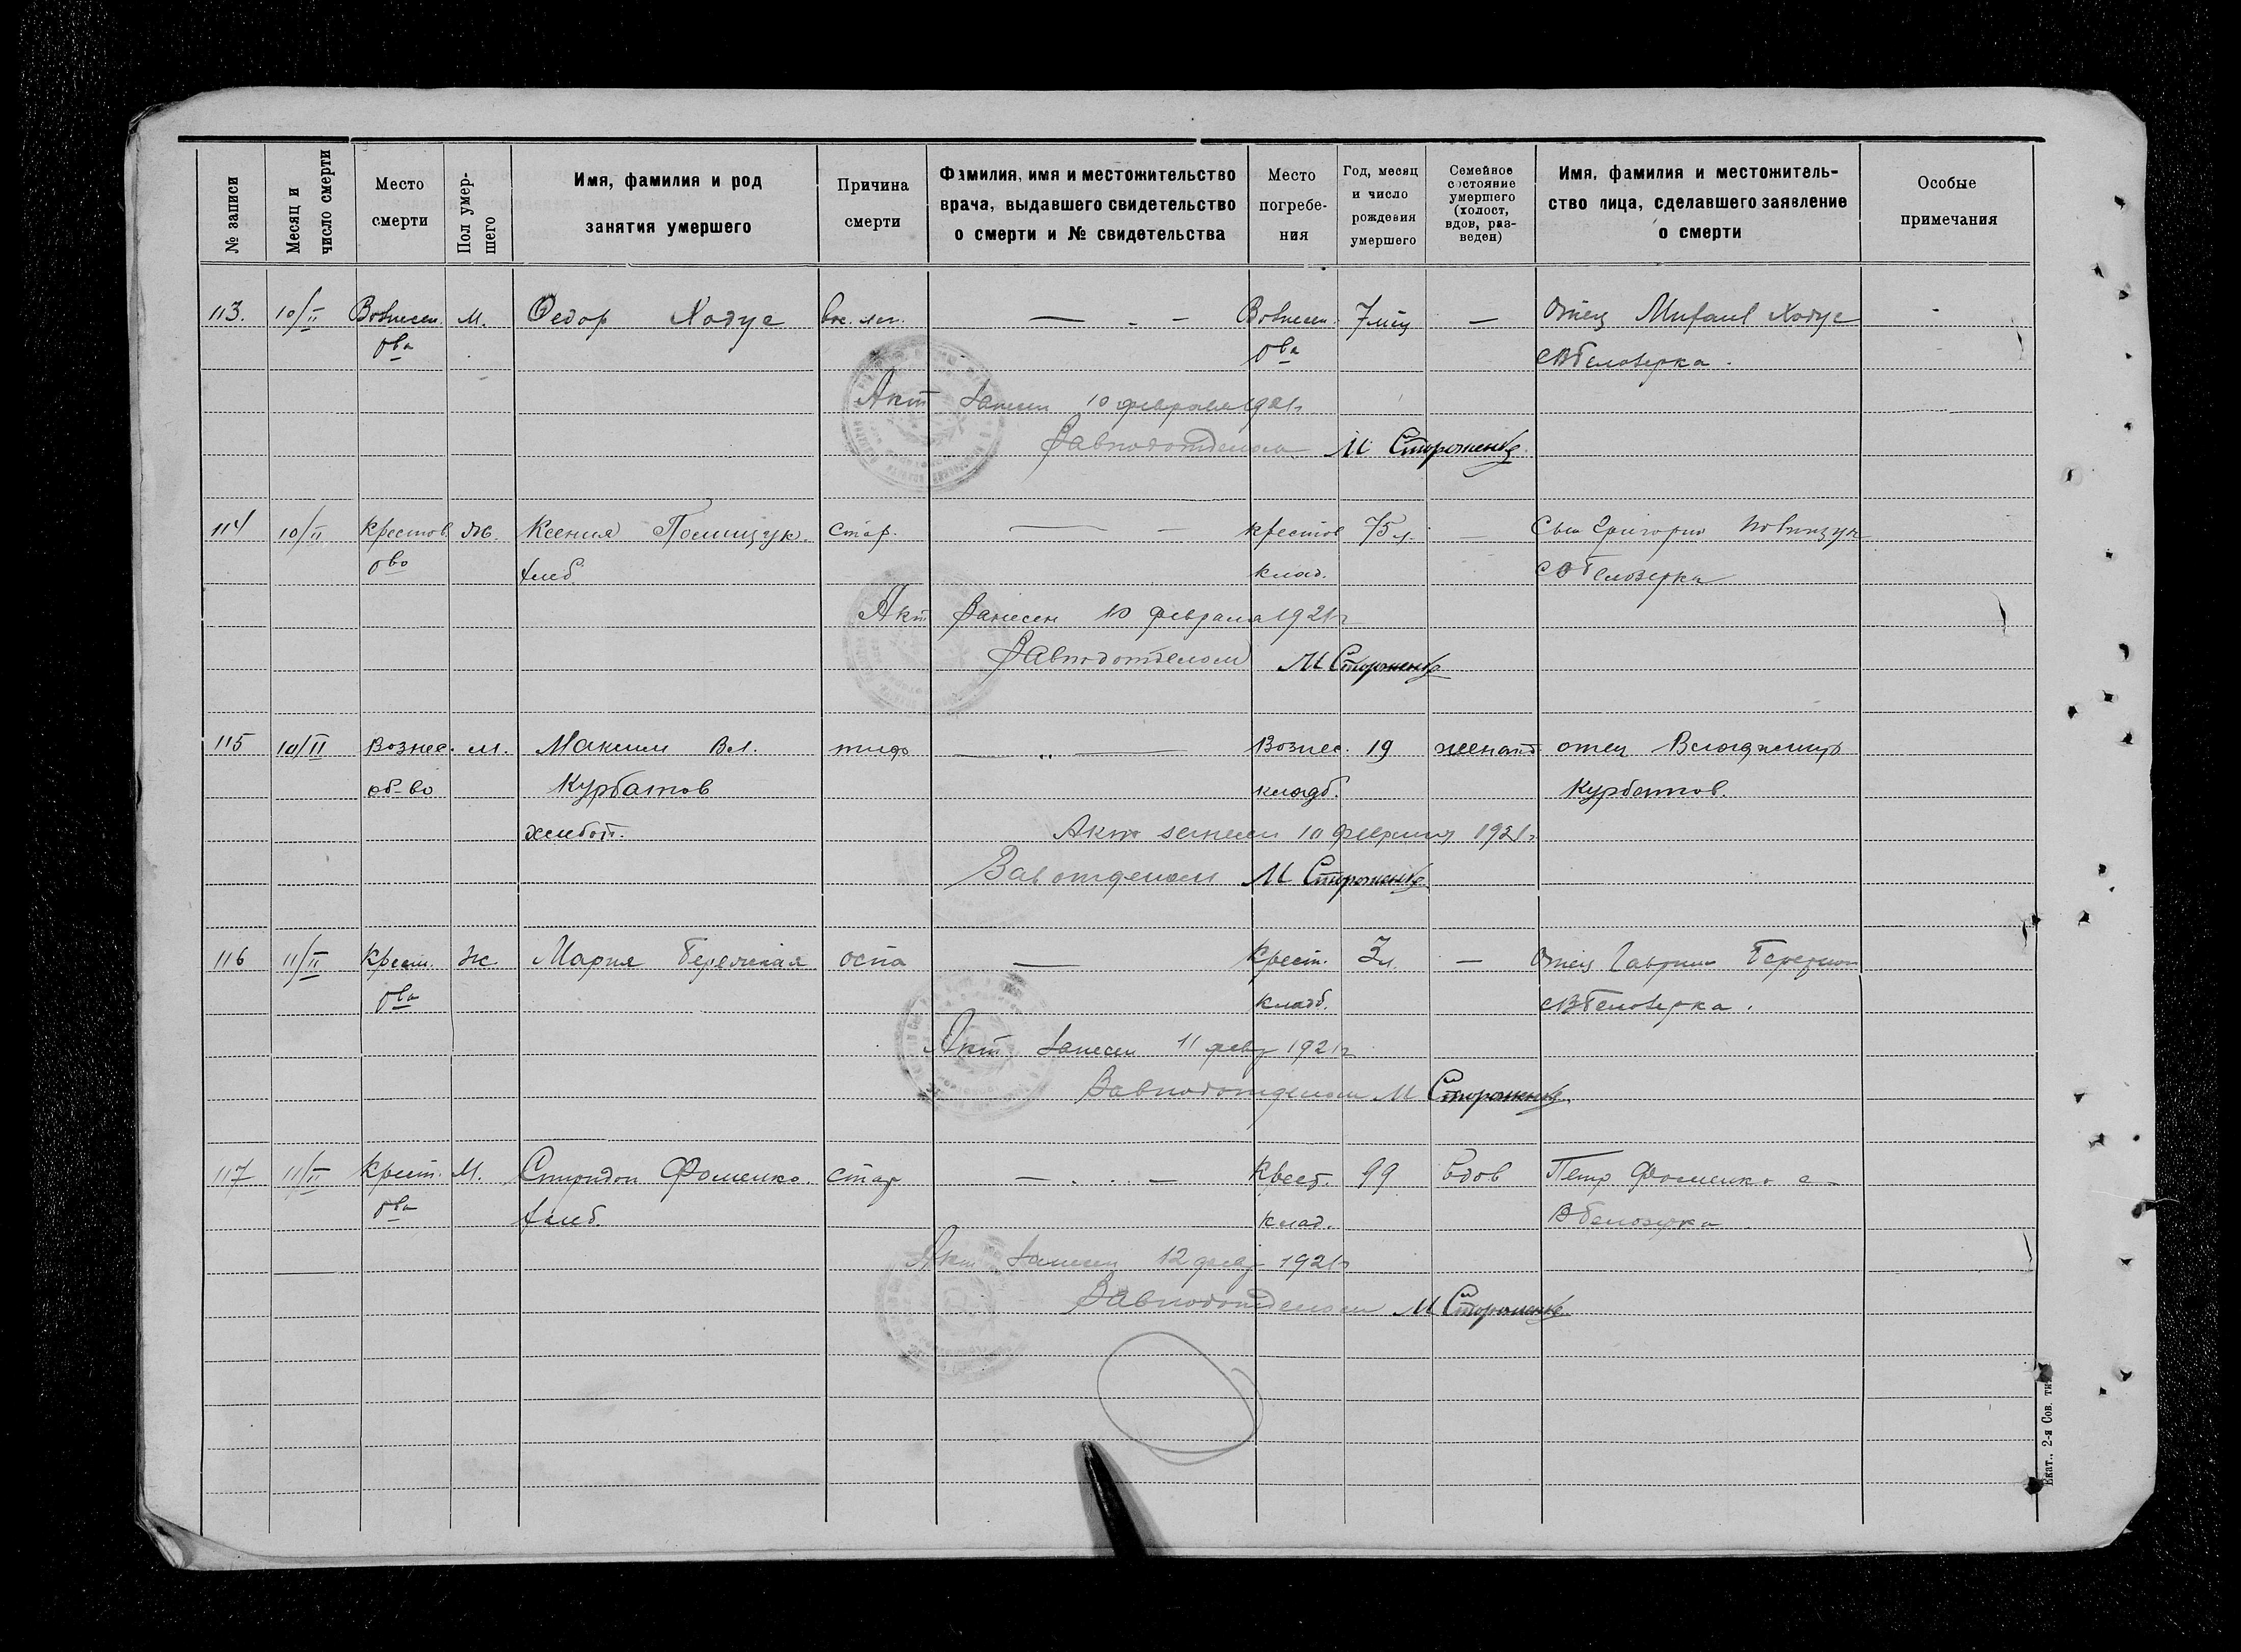 № записи
Месяц и число смерти
Место смерти
Пол умершего
Имя, фамилия и род занятия умершего
Причина смерти
Фамилия, имя и местожительство врача, выдавшего свидетельство о смерти и № свидетельства
Место погребения
Год, месяц и число рождения умершего
Семейное состояние умершего (холост, вдов, разведен)
Имя, фамилия и местожительство лица, сделавшего заявление о смерти
Особые примечания
113. 10/II Вознесен. М. Федор Ходус вос. лег. Вознесен. 7 мец — Отец Михаил Ходус
о-ва о-ва с ВБелозерка.
Акт занесен 10 февраля 1921г
Завподотделом М Стороженко
114 10/II Крестов. ж. Ксения Полищук. стар. Крестов 75 л. — Сын Григорий Полищук
о-во хлеб. клад. с ВБелозерка
Акт занесен 10 февраля 1921г
Завподотделом М Стороженко
115 10/II Вознес. м. Максим Вл. тиф Вознес. 19 женат отец Владимир
об-во Курбатов кладб. Курбатов.
хлебоп. Акт занесен 10 февраля 1921г
Завотделом М Стороженко
116 11/II Крест. ж. Мария оспа — Крест. 3 л. — Отец Гаврил
о-ва кладб. с ВБелозерка.
Акт занесен 11 февр 1921г
Завподотделом М Стороженко
117 11/II Крест. М. Фоменко. стар Крест. 99 вдов Петр Фоменко с
о-ва хлеб. клад. ВБелозерка
Акт занесен 12 февр 1921г
Завподотделом М Стороженко
Екат., 2-я Сов. ти